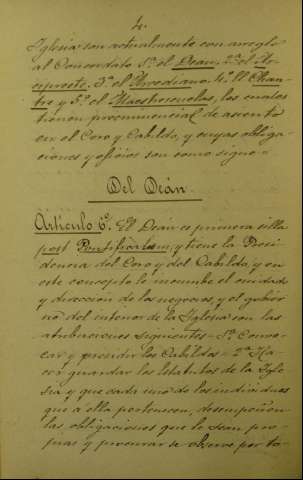 4.
Iglesia son actualmente con arreglo
al Concordato 1º. el Dean. 2º. el Ar-
cipreste. 3º. el Arcediano. 4º. El Chan-
tre y 5º. el Maestrescuelas, los cuales
tienen preeminencia de asiento
en el Coro y Cabildo, y cuyas obliga-
ciones y oficios son como sigue=
Del Deán.
Artículo 6º. El Deán es primera silla
post Pontificalem, y tiene la Presi-
dencia del Coro y del Cabildo, y en
este concepto le incumbe el cuidado
y dirección de los negocios, y el gobier
no del interior de la Iglesia con las
atribuciones siguientes= 1ª. Convo-
car y presidir los Cabildos= 2ª Ha-
cer guardar los Estatutos de la Igle
sia y que cada uno de los individuos
que a ella pertenecen, desempeñen
las obligaciones que le sean pro-
pias y procurar se observe por to-